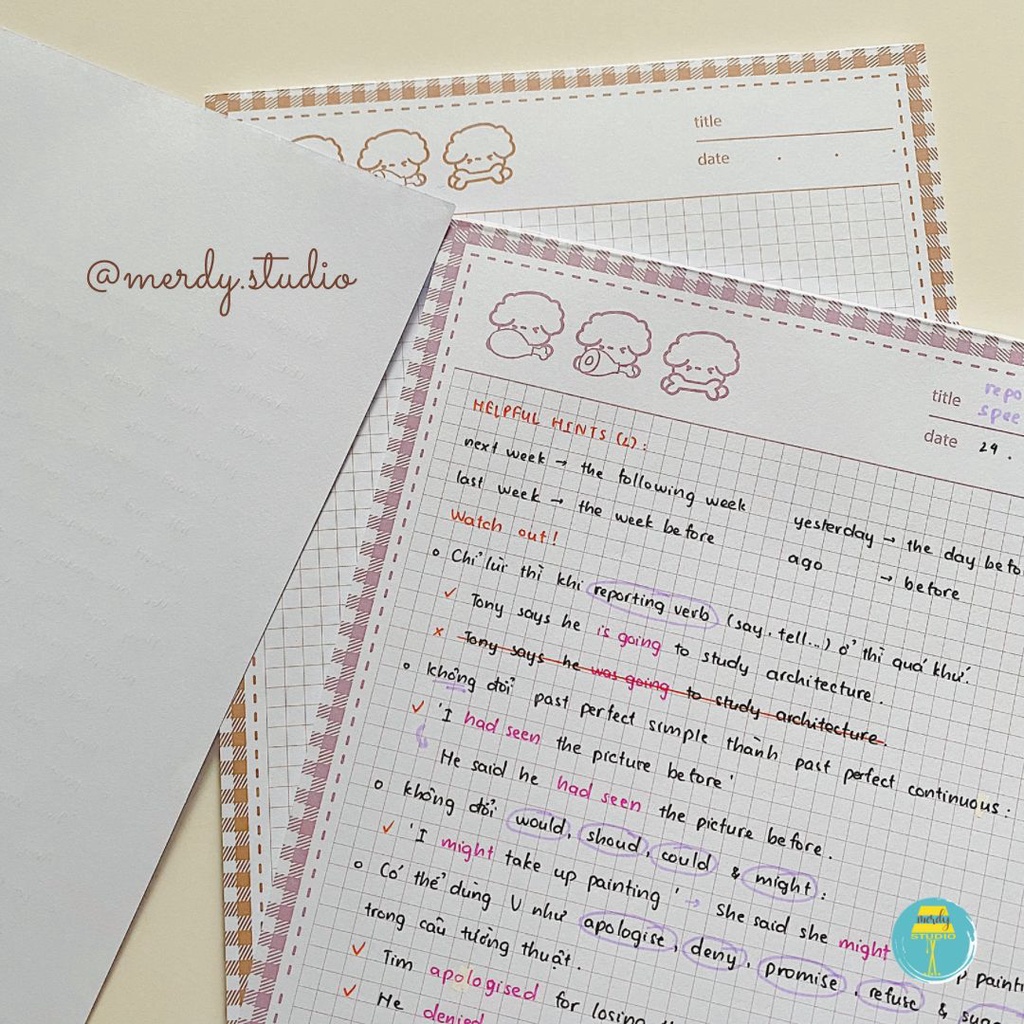 @merdy.studio
title
date
title repo
spee
date 29.
HELPFUL HINTS (2):
next week → the following week
yesterday → the day befo
last week → the week before
ago → before
Watch out!
Chỉ lùi thì khi reporting verb (say, tell...) ở thì quá khứ.
✓ Tony says he is going to study architecture.
x Tony says he was going to study architecture.
không đổi past perfect simple thành past perfect continuous:
✓ 'I had seen the picture before'
He said he had seen the picture before.
không đổi would, shoud, could & might:
✓ 'I might take up painting' → She said she might p painti
Có thể dùng V như apologise, deny, promise, refuse & sugg
trong câu tường thuật.
✓ Tim apologised for losing th
✓ He denied
merdy
STUDIO